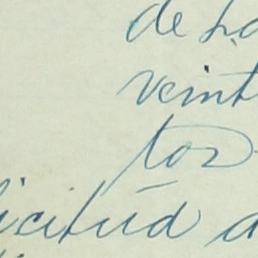 de
veint
tos
licitud d